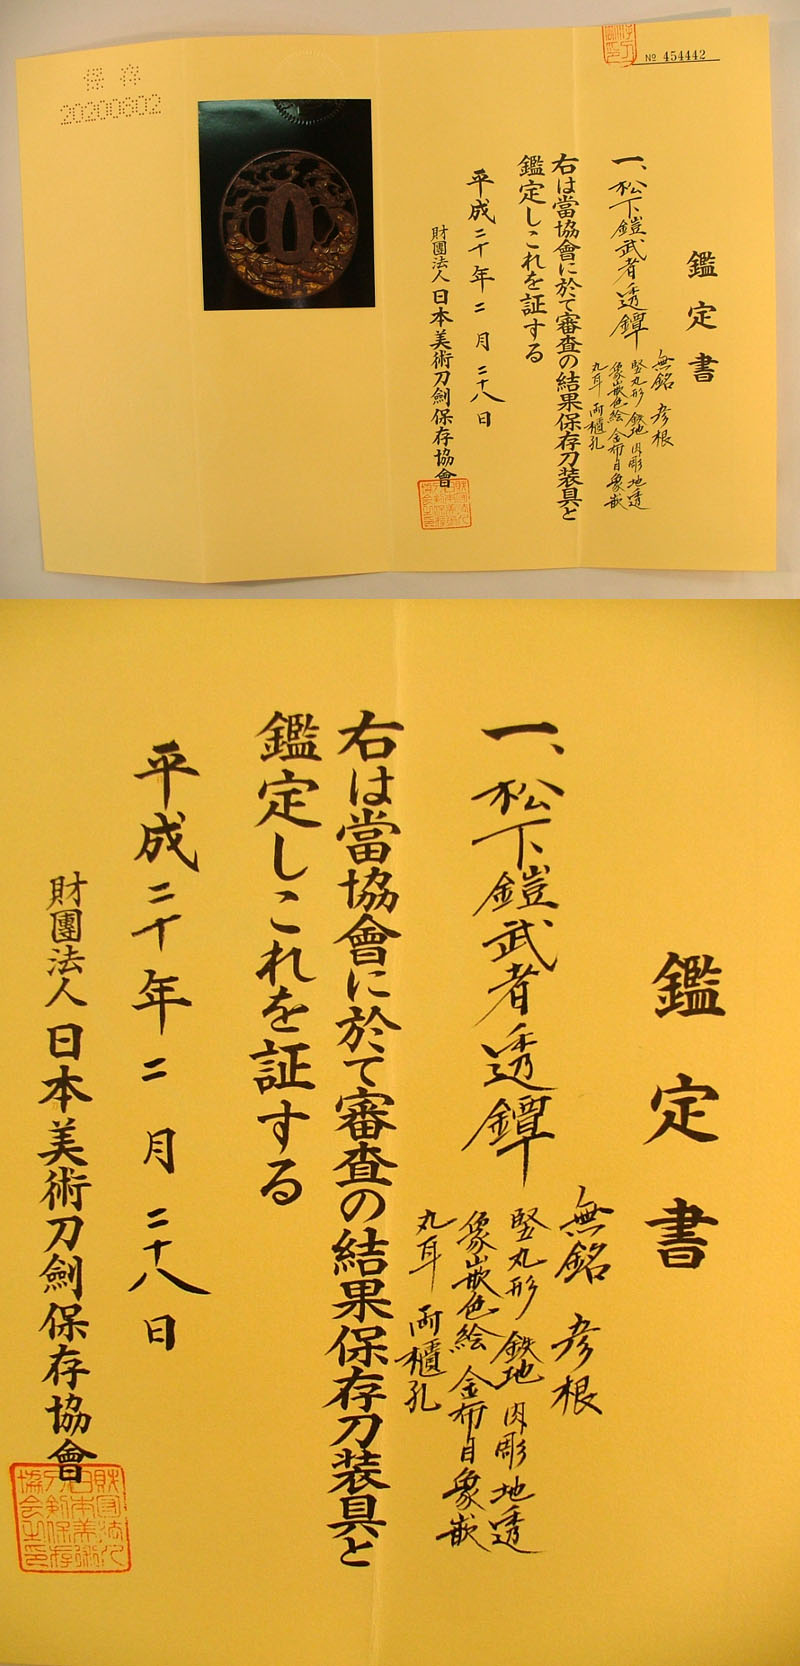 № 454442
鑑定書
一、松下鎧武者透鐔
無銘 彦根
竪丸形 鉄地 肉彫地透
象嵌色絵 金布目象嵌
丸耳 両櫃孔
右は當協會に於て審査の結果保存刀装具と
鑑定しこれを証する
平成二十年二月二十八日
財團法人日本美術刀劍保存協會
保存
20200802
鑑定書
一、松下鎧武者透鐔
無銘 彦根
竪丸形 鉄地 肉彫地透
象嵌色絵 金布目象嵌
丸耳 両櫃孔
右は當協會に於て審査の結果保存刀装具と
鑑定しこれを証する
平成二十年二月二十八日
財團法人日本美術刀劍保存協會
財団法人
日本美術
刀剣保存
協会之印